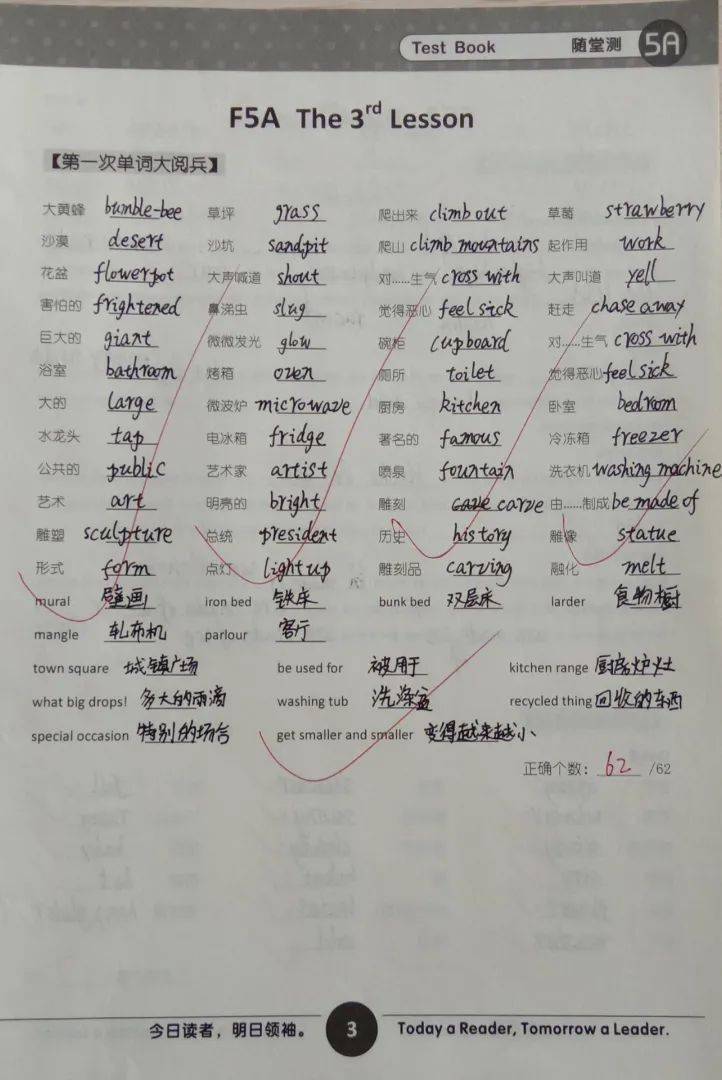 Test Book 随堂测 5A
F5A The 3rd Lesson
【第一次单词大阅兵】
大黄蜂 bumble-bee 草坪 grass 爬出来 climb out 草莓 strawberry
沙漠 desert 沙坑 sandpit 爬山 climb mountains 起作用 work
花盆 flowerpot 大声喊道 shout 对……生气 cross with 大声叫道 yell
害怕的 frightened 鼻涕虫 slug 觉得恶心 feel sick 赶走 chase away
巨大的 giant 微微发光 glow 碗柜 cupboard 对……生气 cross with
浴室 bathroom 烤箱 oven 厕所 toilet 觉得恶心 feel sick
大的 large 微波炉 microwave 厨房 kitchen 卧室 bedroom
水龙头 tap 电冰箱 fridge 著名的 famous 冷冻箱 freezer
公共的 public 艺术家 artist 喷泉 fountain 洗衣机 washing machine
艺术 art 明亮的 bright 雕刻 carve 由……制成 be made of
雕塑 sculpture 总统 president 历史 history 雕像 statue
形式 form 点灯 light up 雕刻品 carving 融化 melt
mural 壁画 iron bed 铁床 bunk bed 双层床 larder 食物橱
mangle 轧布机 parlour 客厅
town square 城镇广场 be used for 被用于 kitchen range 厨房炉灶
what big drops! 多大的雨滴 washing tub 洗涤盆 recycled thing 回收的东西
special occasion 特别的场合 get smaller and smaller 变得越来越小
正确个数: 62 /62
今日读者，明日领袖。 3 Today a Reader, Tomorrow a Leader.